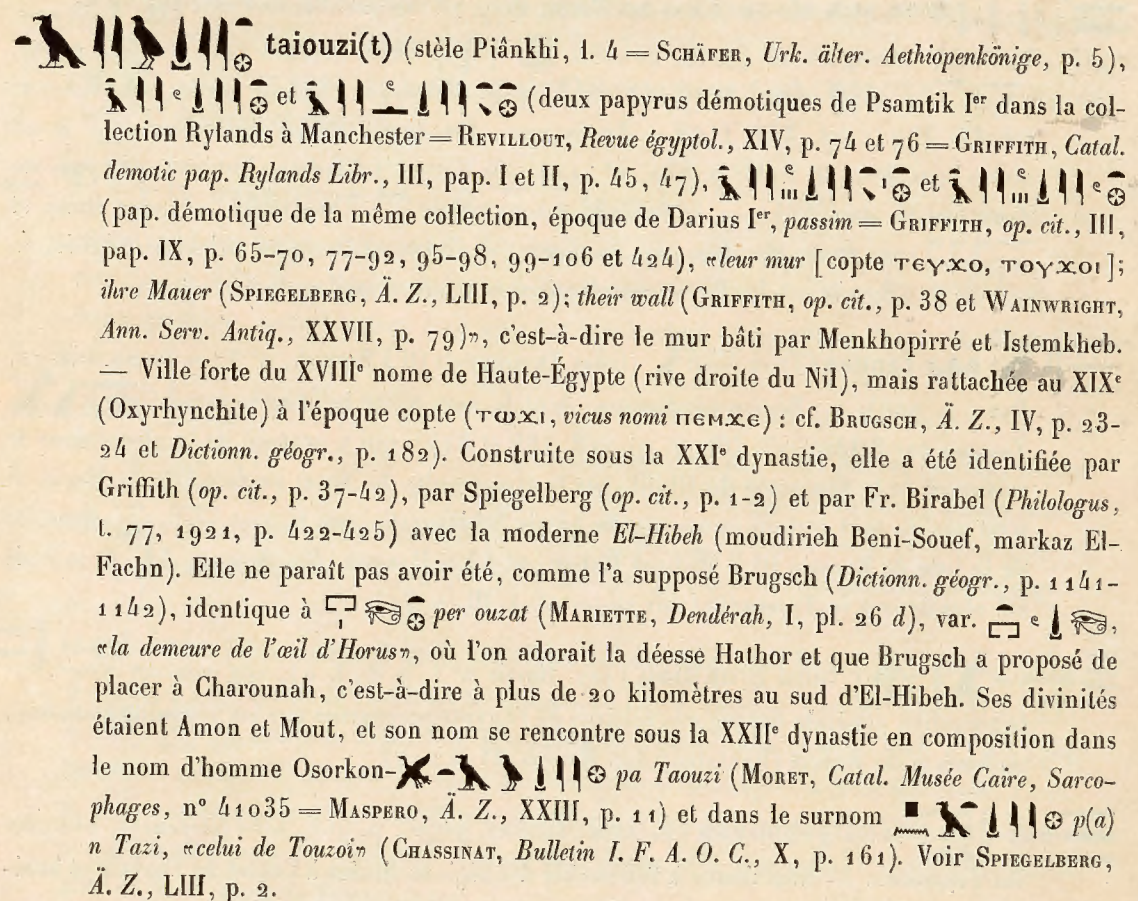 taiouzi(t) (stèle Piânkhi, l. 4 = SCHÄFER, Urk. älter. Aethiopenkönige, p. 5),
et (deux papyrus démotiques de Psamtik Iᵉʳ dans la col-
lection Rylands à Manchester = REVILLOUT, Revue égyptol., XIV, p. 74 et 76 = GRIFFITH, Catal.
demotic pap. Rylands Libr., III, pap. I et II, p. 45, 47), et
(pap. démotique de la même collection, époque de Darius Iᵉʳ, passim = GRIFFITH, op. cit., III,
pap. IX, p. 65-70, 77-92, 95-98, 99-106 et 424), «leur mur [copte ⲧⲉⲩϫⲟ, ⲧⲟⲩϫⲟⲓ];
ihre Mauer (SPIEGELBERG, Ä. Z., LIII, p. 2); their wall (GRIFFITH, op. cit., p. 38 et WAINWRIGHT,
Ann. Serv. Antiq., XXVII, p. 79)», c'est-à-dire le mur bâti par Menkhopirré et Istemkheb.
— Ville forte du XVIIIᵉ nome de Haute-Égypte (rive droite du Nil), mais rattachée au XIXᵉ
(Oxyrhynchite) à l'époque copte (ⲧⲱϫⲓ, vicus nomi ⲡⲉⲙϫⲉ) : cf. BRUGSCH, Ä. Z., IV, p. 23-
24 et Dictionn. géogr., p. 182). Construite sous la XXIᵉ dynastie, elle a été identifiée par
Griffith (op. cit., p. 37-42), par Spiegelberg (op. cit., p. 1-2) et par Fr. Birabel (Philologus,
t. 77, 1921, p. 422-425) avec la moderne El-Hibeh (moudirieh Beni-Souef, markaz El-
Fachn). Elle ne paraît pas avoir été, comme l'a supposé Brugsch (Dictionn. géogr., p. 1141-
1142), identique à per ouzat (MARIETTE, Dendérah, I, pl. 26 d), var.
«la demeure de l'œil d'Horus», où l'on adorait la déesse Hathor et que Brugsch a proposé de
placer à Charounah, c'est-à-dire à plus de 20 kilomètres au sud d'El-Hibeh. Ses divinités
étaient Amon et Mout, et son nom se rencontre sous la XXIIᵉ dynastie en composition dans
le nom d'homme Osorkon- pa Taouzi (MORET, Catal. Musée Caire, Sarco-
phages, n° 41035 = MASPERO, Ä. Z., XXIII, p. 11) et dans le surnom p(a)
n Tazi, «celui de Touzoi» (CHASSINAT, Bulletin I. F. A. O. C., X, p. 161). Voir SPIEGELBERG,
Ä. Z., LIII, p. 2.